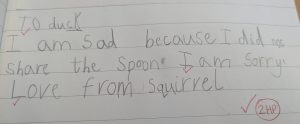 To duck
I am sad because I did not
share the spoon. I am sorry.
Love from squirrel
2HP